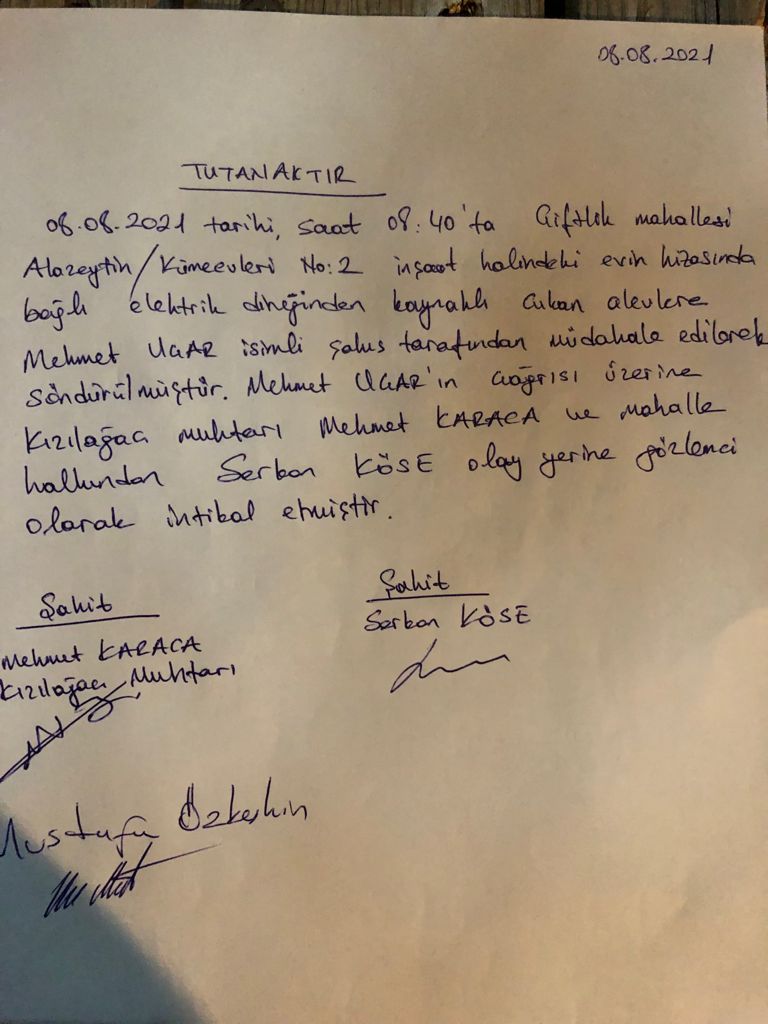 08.08.2021
TUTANAKTIR
08.08.2021 tarihi, saat 08:40'ta Çiftlik mahallesi
Alazeytin/Kümeevleri No:2 inşaat halindeki evin hizasında
bağlı elektrik direğinden kaynaklı çıkan alevlere
Mehmet UÇAR isimli şahıs tarafından müdahale edilerek
söndürülmüştür. Mehmet UÇAR'ın çağrısı üzerine
Kızılağaç muhtarı Mehmet KARACA ve mahalle
halkından Serkan KÖSE olay yerine gözlemci
olarak intikal etmiştir.
Şahit
Mehmet KARACA
Kızılağaç Muhtarı
Şahit
Serkan KÖSE
Mustafa Özkeskin